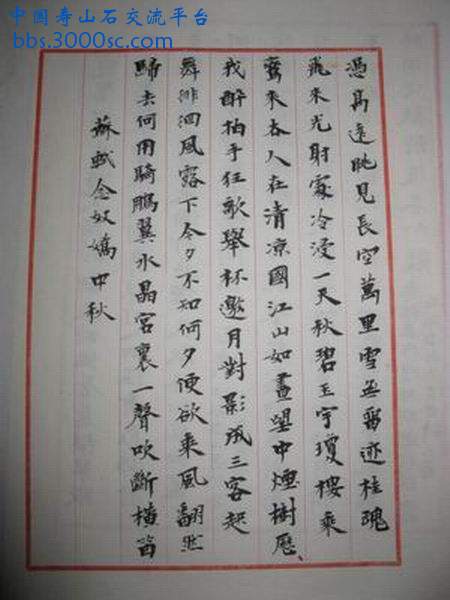 中国寿山石交流平台
bbs.3000sc.com
憑高遠眺見長空萬里雲無留迹桂魄
飛來光射處冷浸一天秋碧玉宇瓊樓乘
鸞來去人在清凉國江山如畫望中煙樹歷、
我醉拍手狂歌舉杯邀月對影成三客起
舞徘徊風露下今夕不知何夕便欲乘風翻然
歸去何用騎鵬翼水晶宮裏一聲吹斷橫笛
蘇軾念奴嬌中秋